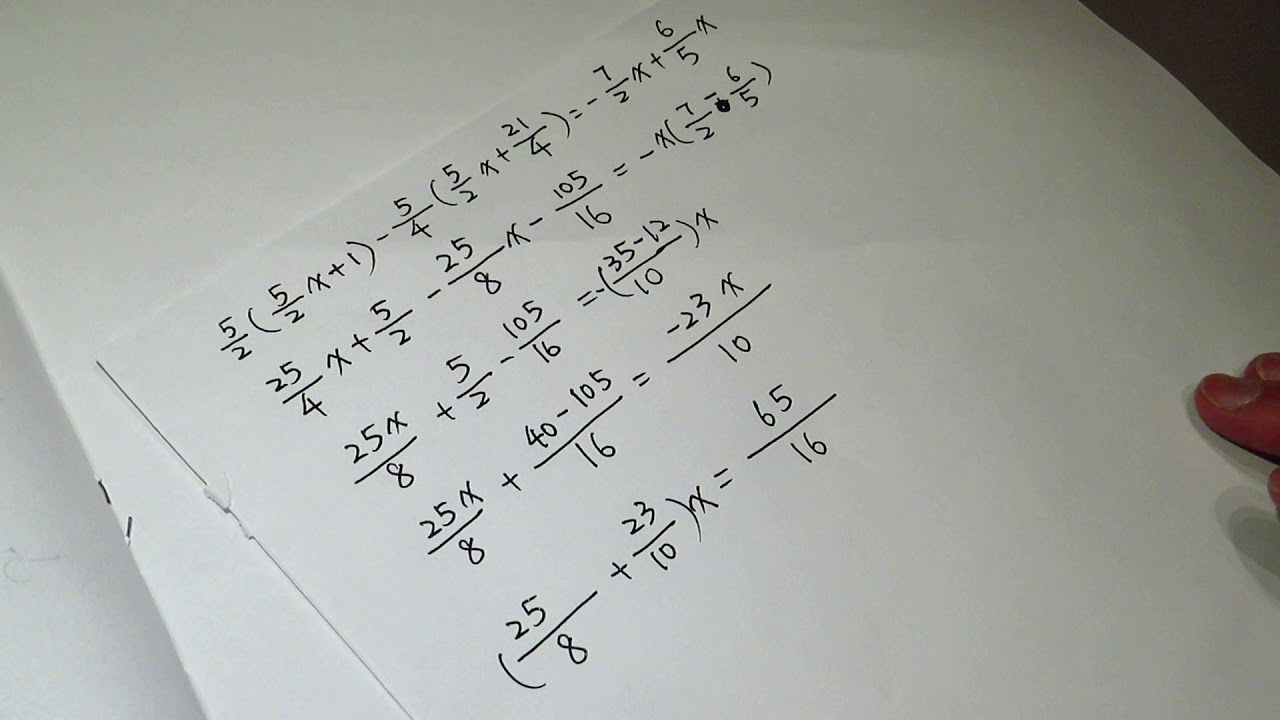 5/2 (5/2 x + 1) - 5/4 (5/2 x + 21/4) = - 7/2 x + 6/5 x
25/4 x + 5/2 - 25/8 x - 105/16 = - x (7/2 - 6/5)
25x/8 + 5/2 - 105/16 = - (35-12/10) x
25x/8 + 40-105/16 = -23x/10
(25/8 + 23/10) x = 65/16